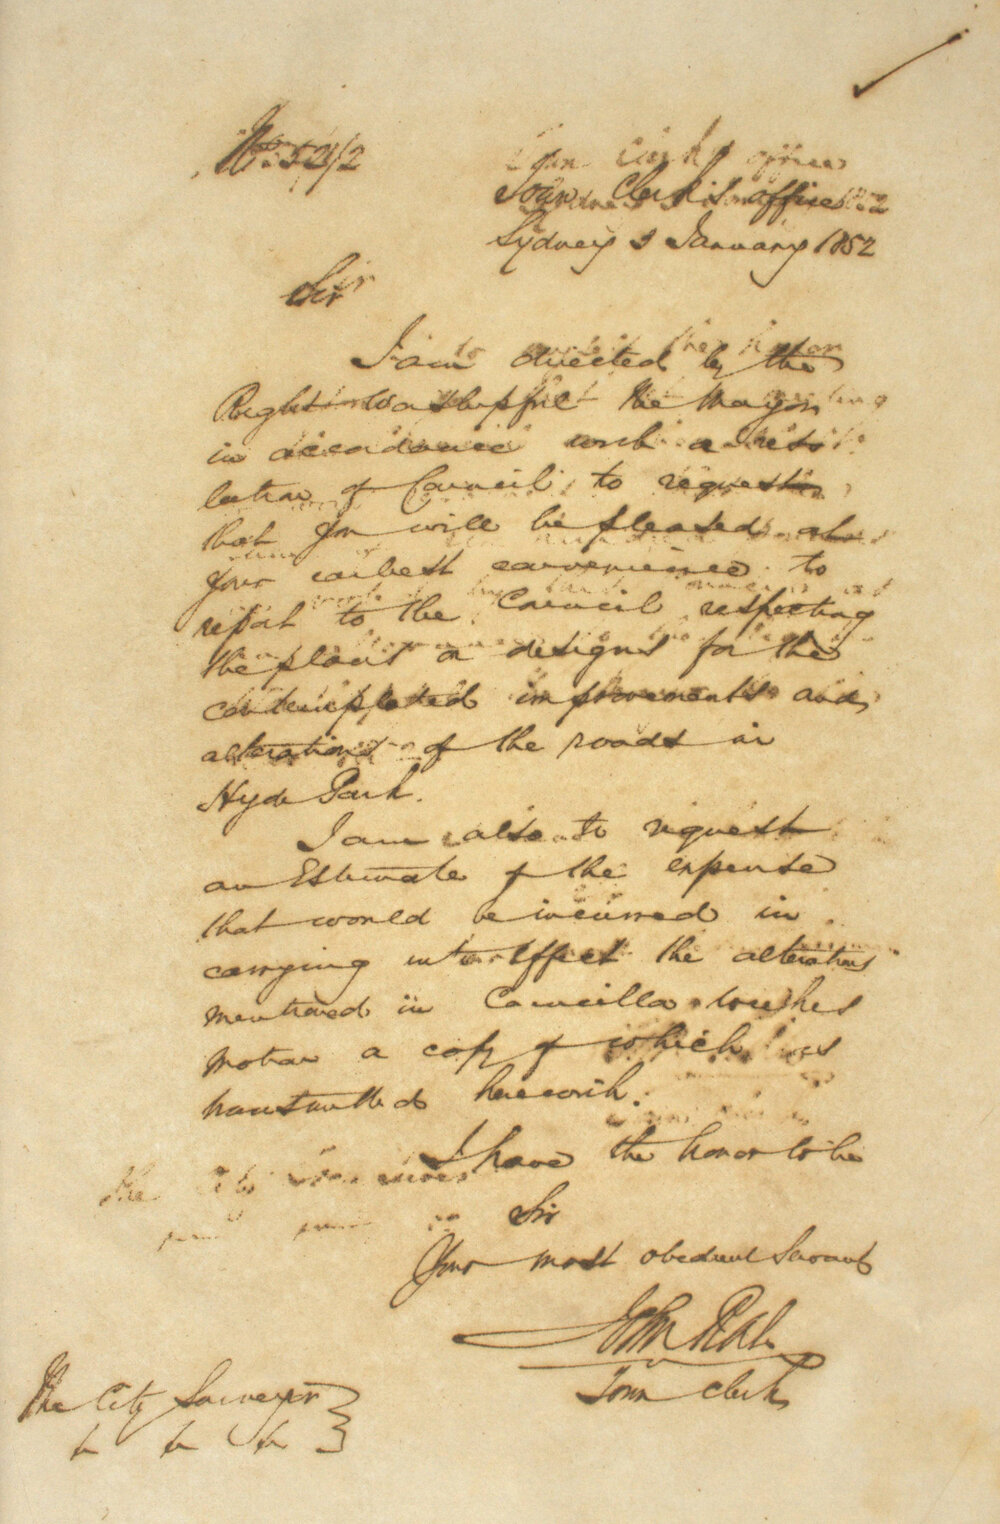 No. 52/2
Town Clerk's office
Sydney 3 January 1852
Sir
I am directed by the
Right Worshipful the Mayor
in accordance with a reso
lution of Council to request
that you will be pleased at
your earliest convenience to
report to the Council respecting
the plans or designs for the
contemplated improvements and
alterations of the roads in
Hyde Park.
I am also to request
an Estimate of the expense
that would be incurred in
carrying into effect the alterations
mentioned in Councillor
motion a copy of which is
transmitted herewith.
I have the honor to be
Sir
Your most obedient Servant
John Rae
Town Clerk
The City Surveyor